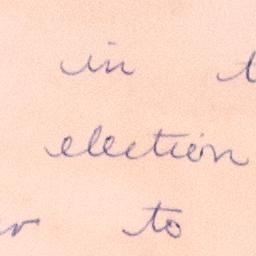 in
election
to